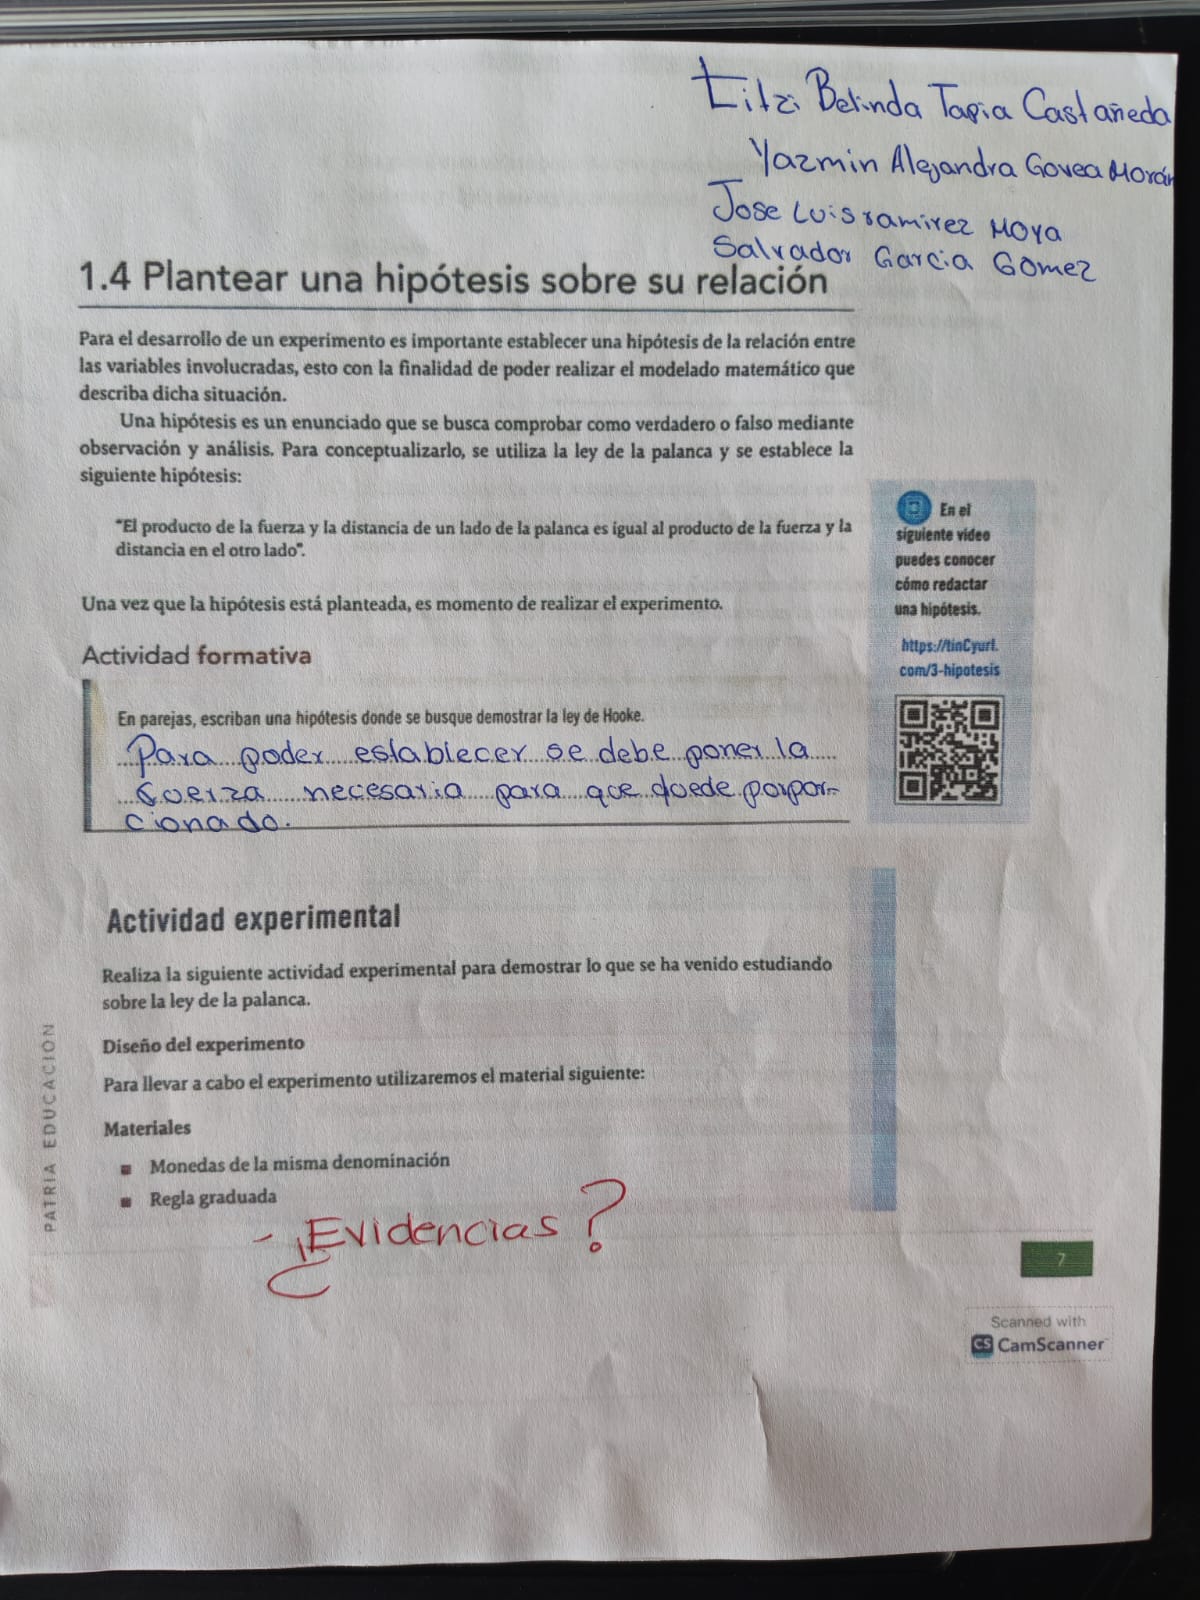 Litzi Belinda Tapia Castañeda
Yazmin Alejandra Govea Morán
Jose Luis ramirez Moya
Salvador Garcia Gomez
1.4 Plantear una hipótesis sobre su relación
Para el desarrollo de un experimento es importante establecer una hipótesis de la relación entre
las variables involucradas, esto con la finalidad de poder realizar el modelado matemático que
describa dicha situación.
Una hipótesis es un enunciado que se busca comprobar como verdadero o falso mediante
observación y análisis. Para conceptualizarlo, se utiliza la ley de la palanca y se establece la
siguiente hipótesis:
"El producto de la fuerza y la distancia de un lado de la palanca es igual al producto de la fuerza y la
distancia en el otro lado".
Una vez que la hipótesis está planteada, es momento de realizar el experimento.
En el
siguiente video
puedes conocer
cómo redactar
una hipótesis.
https://tinCyurl.
com/3-hipotesis
Actividad formativa
En parejas, escriban una hipótesis donde se busque demostrar la ley de Hooke.
Para poder establecer se debe poner la
fuerza necesaria para que quede porpor-
cionado.
Actividad experimental
Realiza la siguiente actividad experimental para demostrar lo que se ha venido estudiando
sobre la ley de la palanca.
Diseño del experimento
Para llevar a cabo el experimento utilizaremos el material siguiente:
Materiales
Monedas de la misma denominación
Regla graduada
- ¿Evidencias?
PATRIA EDUCACIÓN
7
Scanned with
CS CamScanner